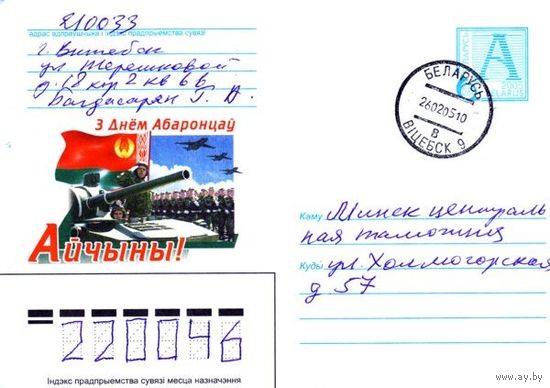 210033
адрас адпраўшчыка і індэкс прадпрыемства сувязі
г. Витебск
ул Терешковой
д. 18 кор 2 кв 66
Багдасарян Г. В.
З Днём Абаронцаў
Айчыны!
БЕЛАРУСЬ
26020510
В
ВІЦЕБСК 9
А
Каму Минск централь
ная таможня
Куды ул. Холмогорская
д 57
220046
Індэкс прадпрыемства сувязі месца назначэння
www.ay.by